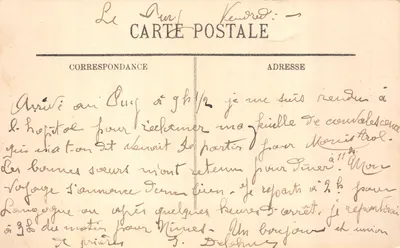 Le Puy Vendredi
CARTE POSTALE
CORRESPONDANCE
ADRESSE
Arrivé au Puy à 9h 1/2 je me suis rendu à
l'hopital pour réclamer ma feuille de convalescence
qui m'a-t-on dit venait de partir pour Monistrol.
Les bonnes sœurs m'ont retenu pour diner à 11h. Mon
voyage s'annonce donc bien. Je repartis à 2h pour
Langogne où après quelques heures d'arrêt, je repartirai
à du matin pour Nimes. Un bonjour et union
de prières